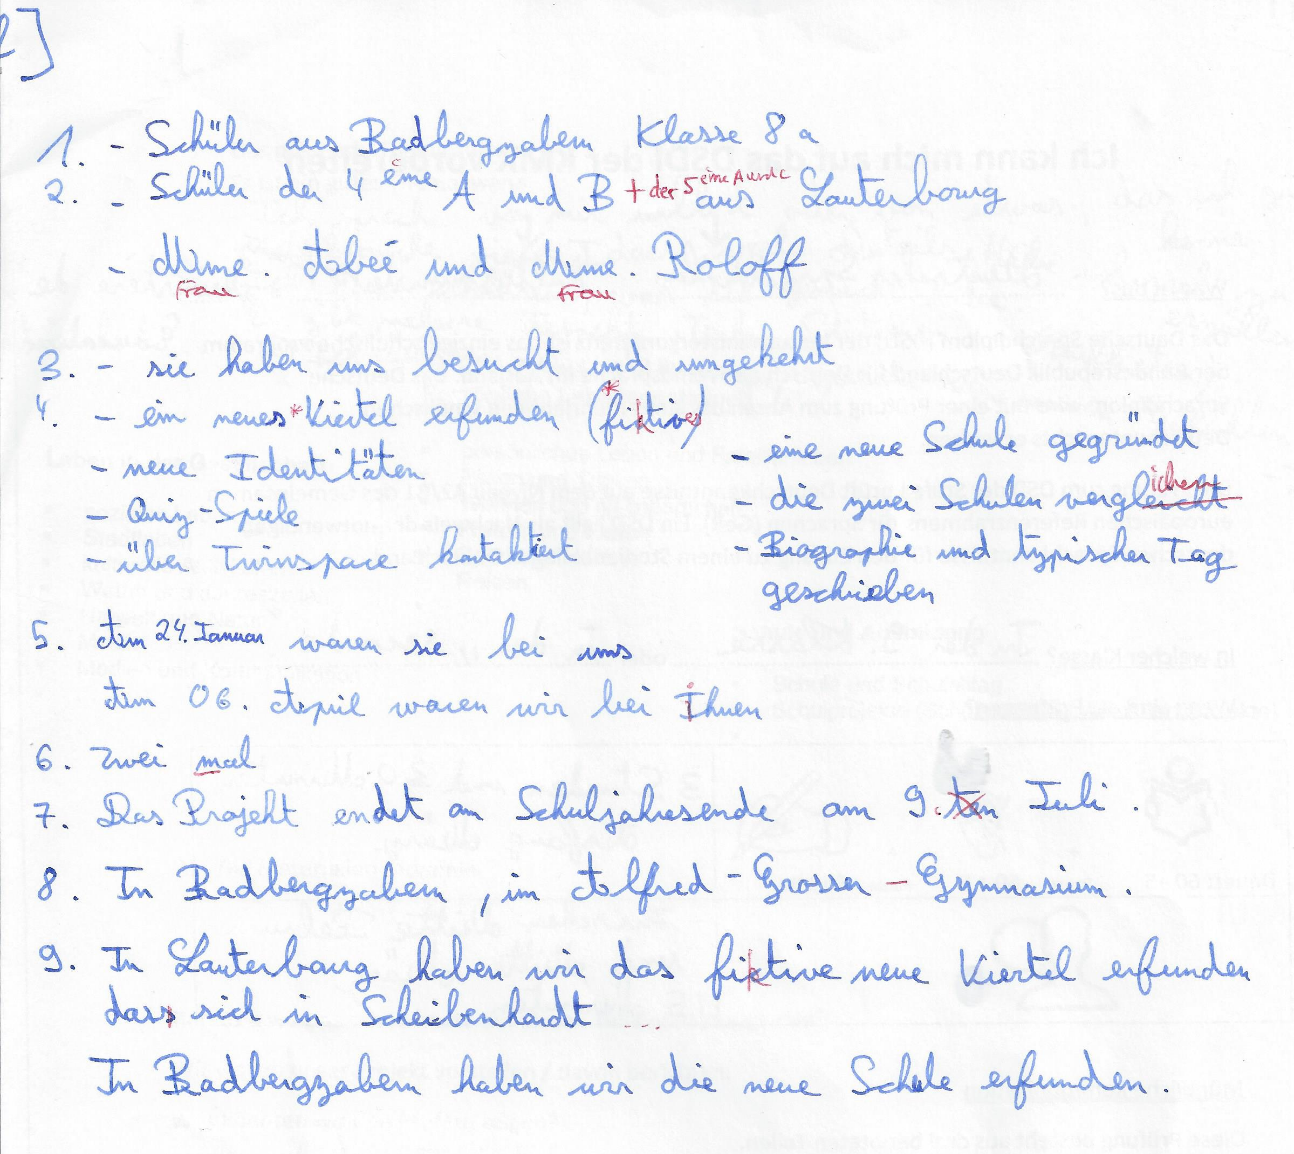 ]
1. - Schüler aus Badbergzabern Klasse 8 a
2. - Schüler der 4 eme A und B + der 5 eme A und C aus Lauterbourg
- Mme. Abéé und Mme. Roloff
Frau Frau
3. - sie haben uns besucht und umgekehrt
4. - ein neues * Viertel erfunden (fiktives) *
- neue Identitäten
- Quiz-Spiele
- über Twinspace kontaktiert
- eine neue Schule gegründet
- die zwei Schulen vergleicht ichen
- Biographie und typischer Tag
geschrieben
5. Am 24. Januar waren sie bei uns
Am 06. April waren wir bei Ihnen
6. zwei mal
7. Das Projekt endet am Schuljahresende am 9. ten Juli .
8. In Badbergzabern , im Alfred - Grosser - Gymnasium .
9. In Lauterbourg haben wir das fiktive neue Viertel erfunden
dass sich in Scheibenhardt ....
In Badbergzabern haben wir die neue Schule erfunden .